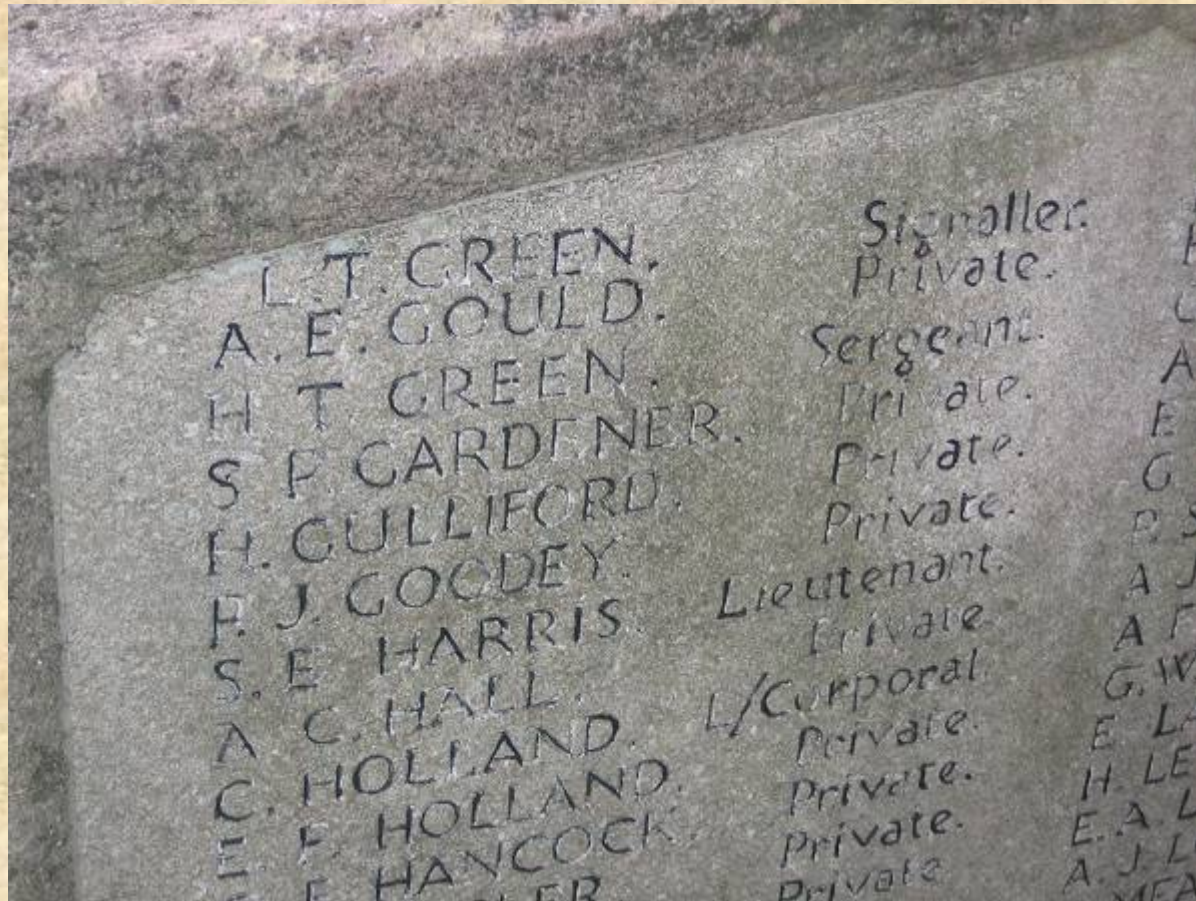 L. T. GREEN. Signaller.
A. E. GOULD. Private.
H T GREEN. Sergeant.
S F. GARDENER. Private.
H. GULLIFORD. Private.
F. J. GOODEY. Private.
S. E HARRIS. Lieutenant.
A C. HALL. Private
C. HOLLAND. L/Corporal.
E. F. HOLLAND. Private.
HANCOCK. Private.
Private.
Private